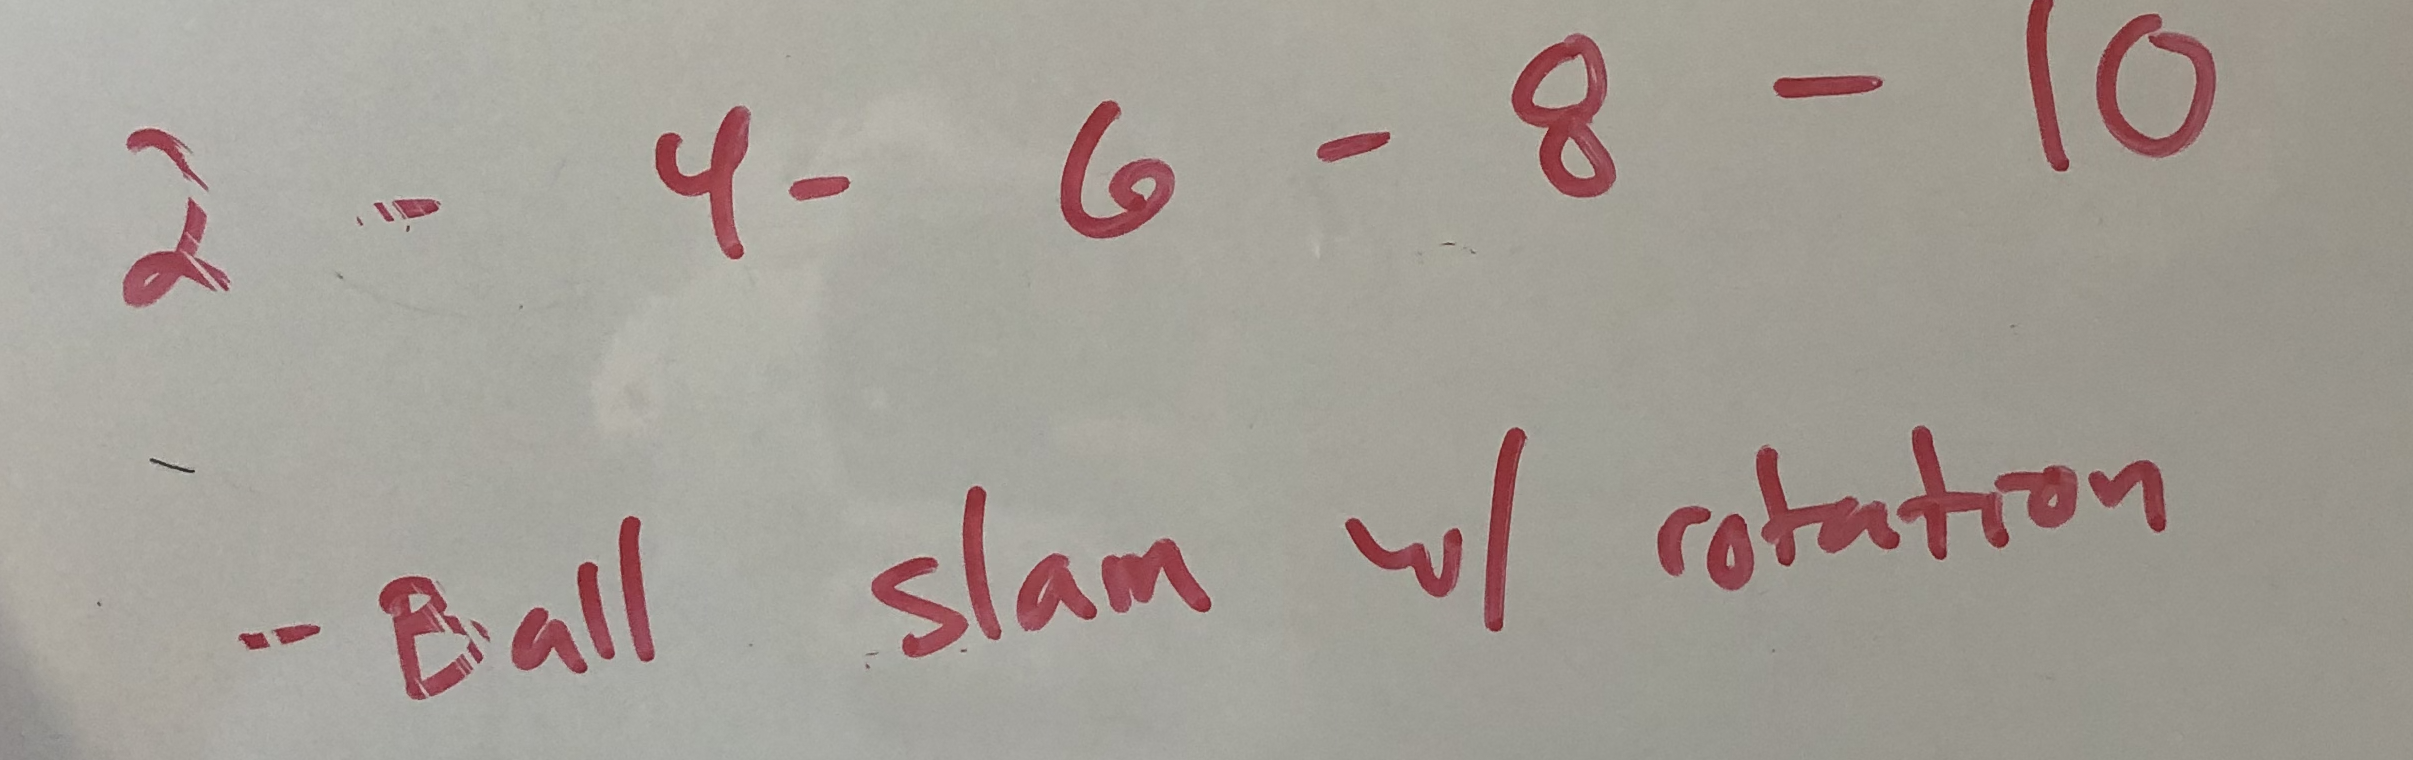 2 - 4 - 6 - 8 - 10
- Ball slam w/ rotation